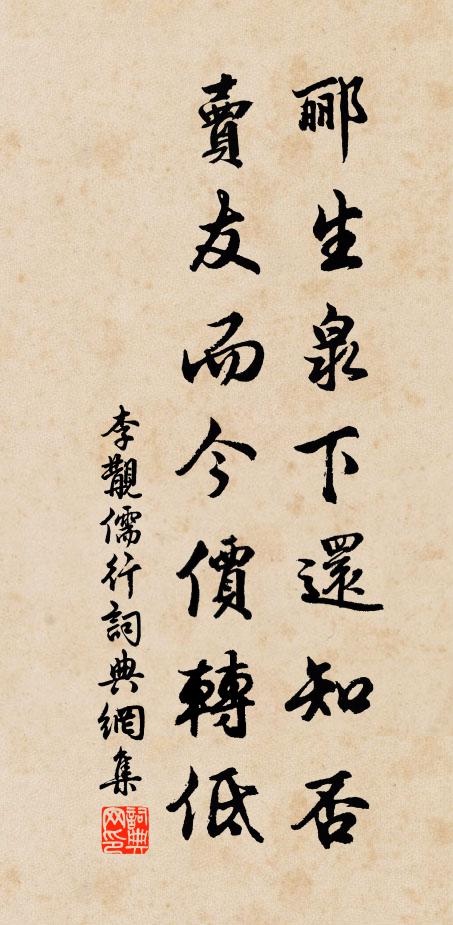 酈生泉下還知否
賣友而今價轉低
李觀儒行詞典網集
詞典網印